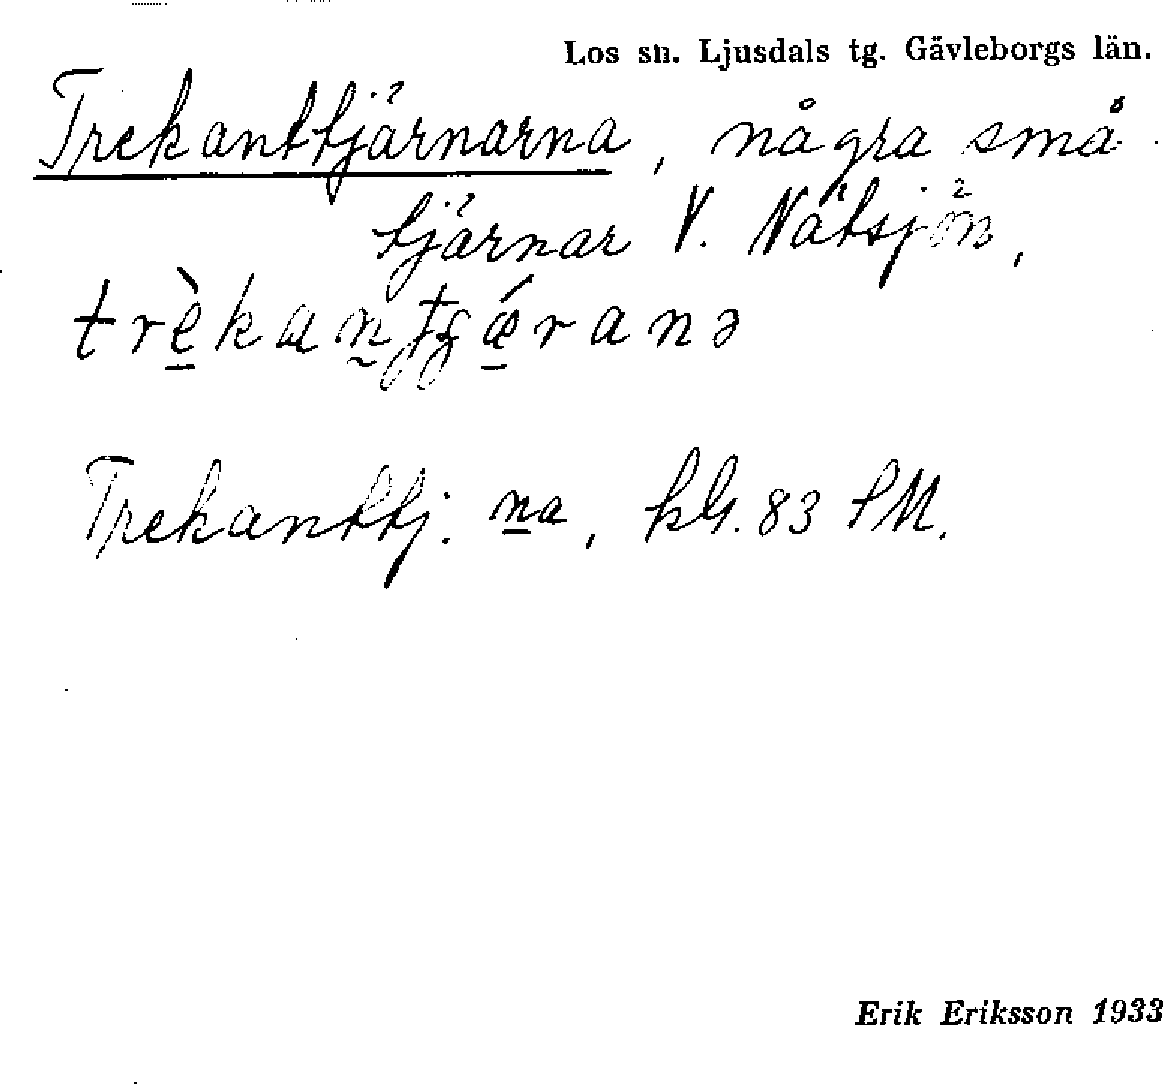 Los sn. Ljusdals tg. Gävleborgs län.
Trekanttjärnarna, några små
tjärnar V. Nätsjön,
Trekanttj. na, kbl. 83 SM.
Erik Eriksson 1933